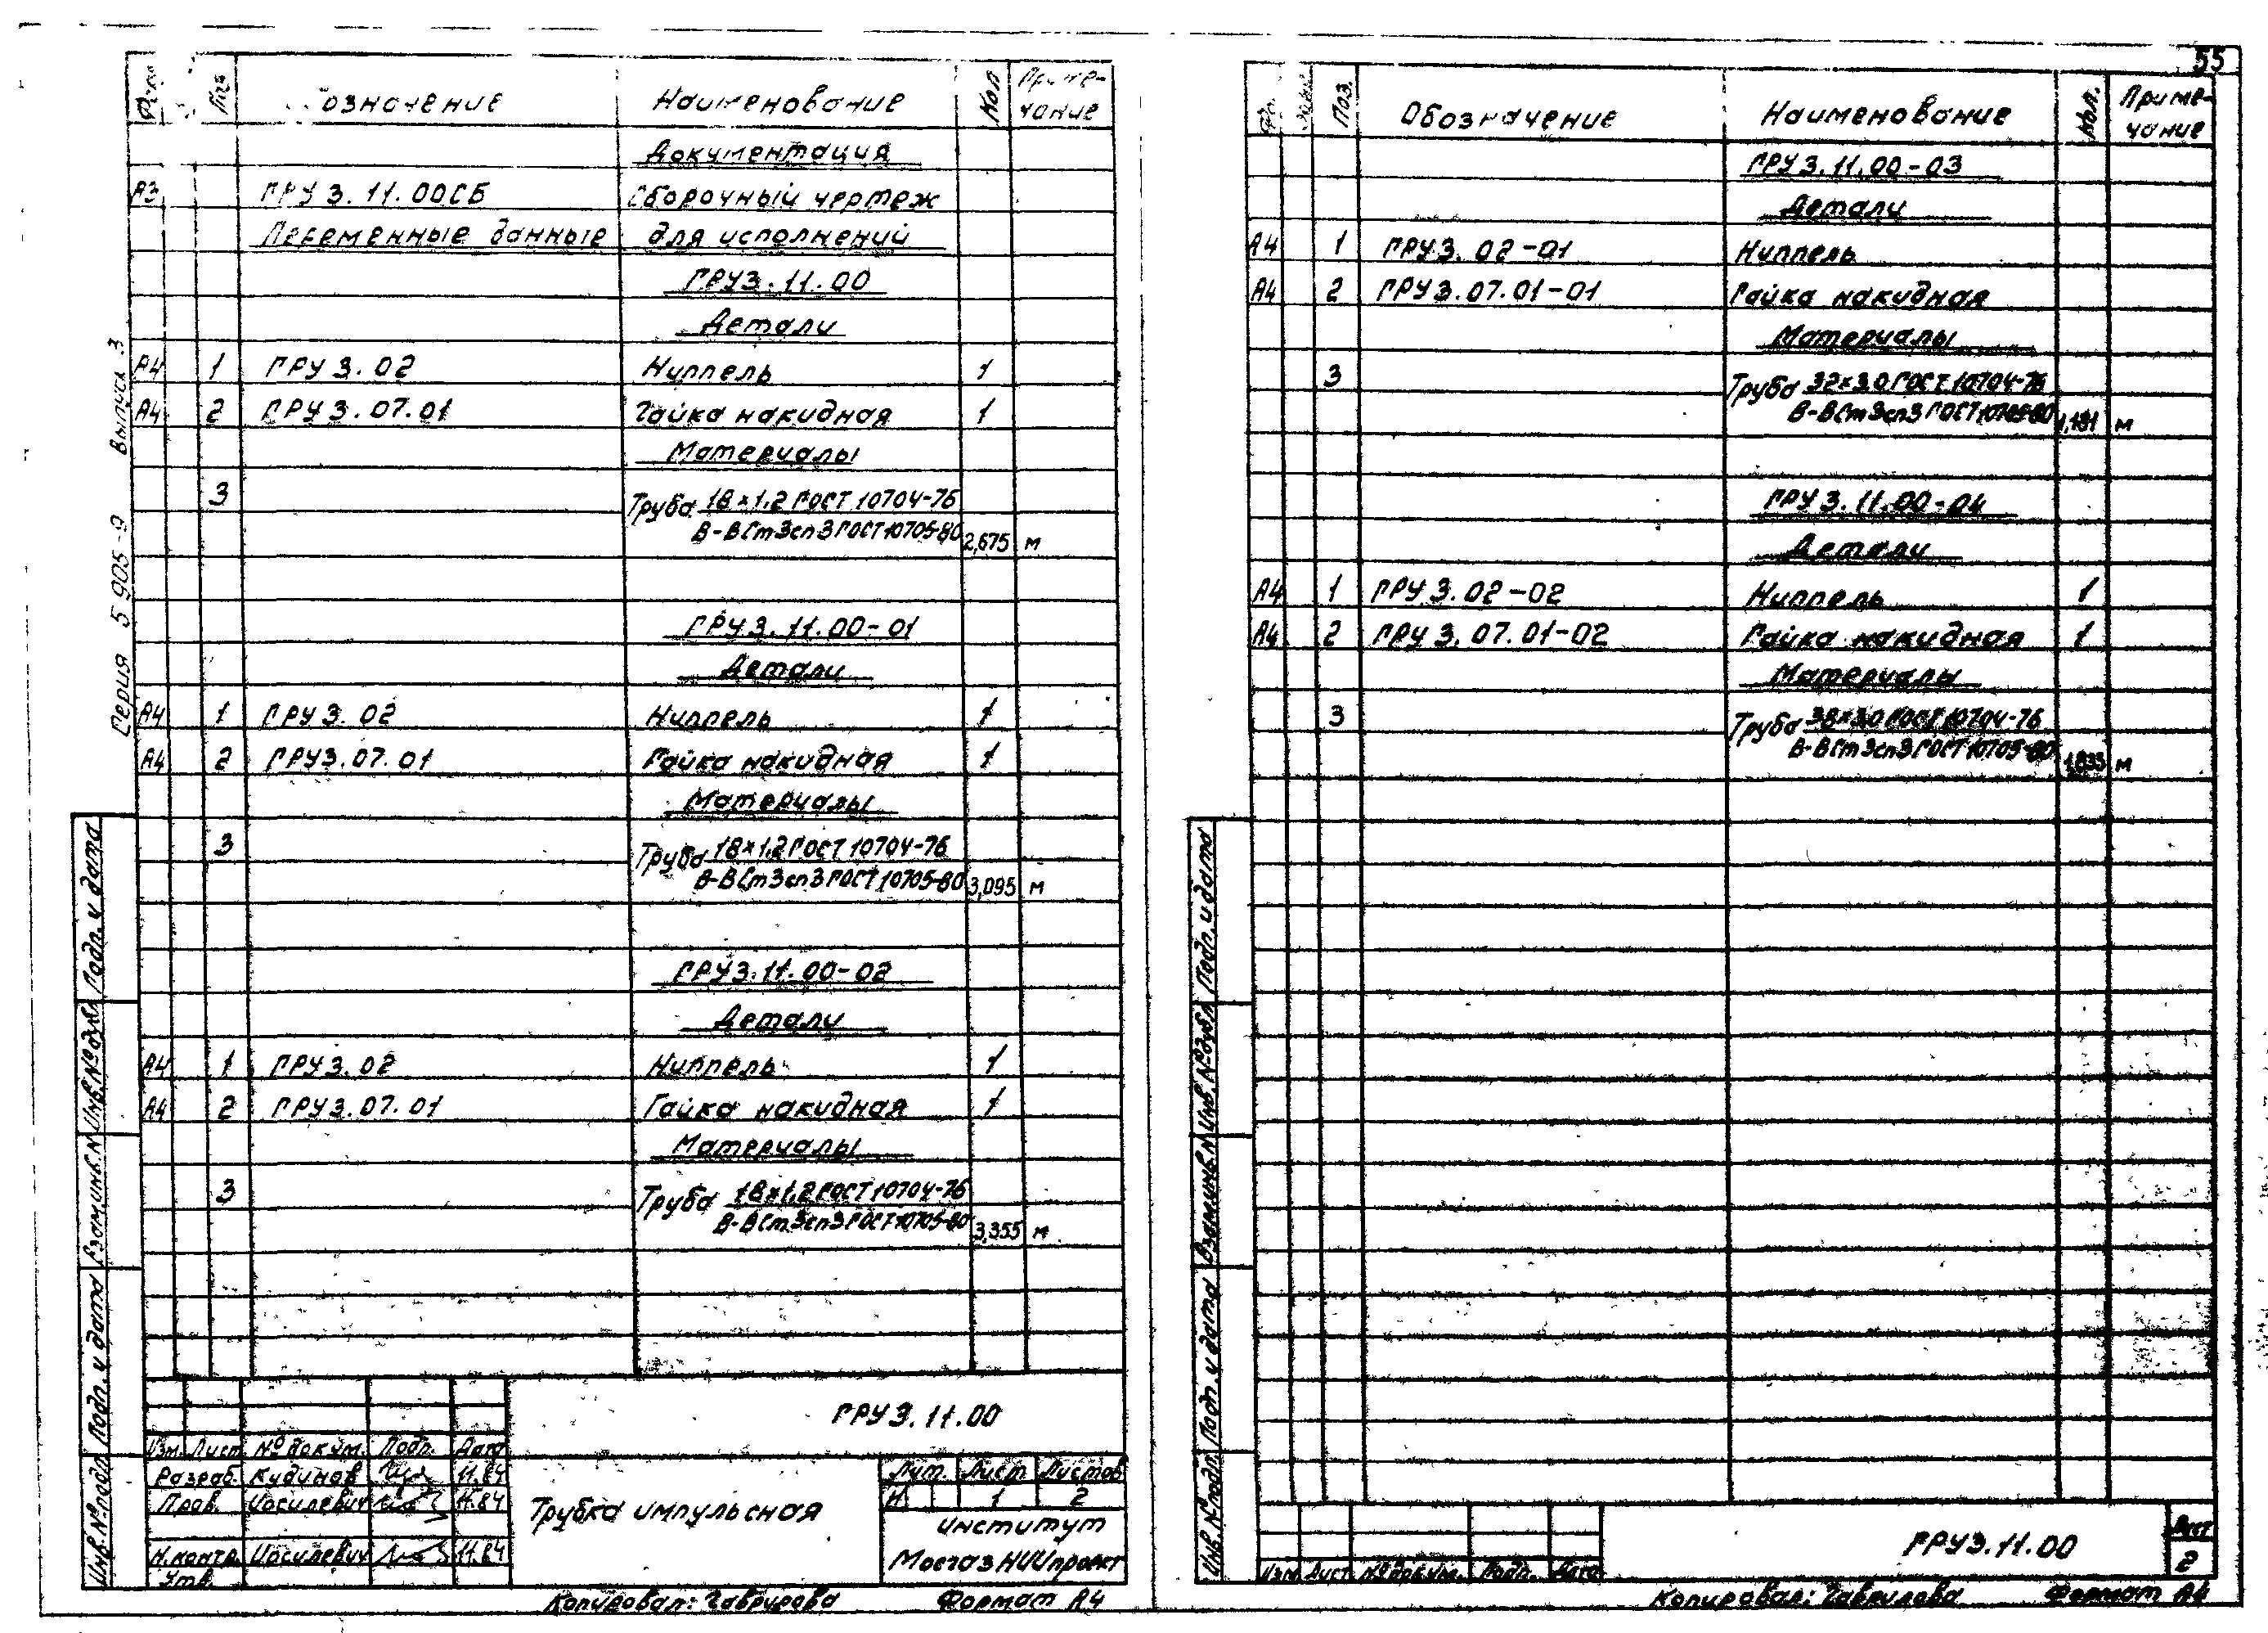 55
Серия 5 905-9 Выпуск 3
Поз. означение Наименование Кол Приме-
чание
Документация
А3 ГРУ 3.11.00СБ Сборочный чертеж
Переменные данные для исполнений
ГРУ3.11.00
Детали
А4 1 ГРУ3.02 Ниппель 1
А4 2 ГРУ3.07.01 Гайка накидная 1
Материалы
3 Труба 18×1,2 ГОСТ 10704-76
В-ВСт3сп3 ГОСТ 10705-80 2,675 м
ГРУ3.11.00-01
Детали
А4 1 ГРУ3.02 Ниппель 1
А4 2 ГРУ3.07.01 Гайка накидная 1
Материалы
3 Труба 18×1,2 ГОСТ 10704-76
В-ВСт3сп3 ГОСТ 10705-80 3,095 м
ГРУ3.11.00-02
Детали
А4 1 ГРУ3.02 Ниппель 1
А4 2 ГРУ3.07.01 Гайка накидная 1
Материалы
3 Труба 18×1,2 ГОСТ 10704-76
В-ВСт3сп3 ГОСТ 10705-80 3,355 м
Инв.№подл. Подп. и дата Взам.инв.№ Инв.№дубл Подп. и дата
ГРУ3.11.00
Изм. Лист № докум. Подп. Дата
Разраб. Кудинов 11.84
Пров. Иосилевич 11.84
Н.контр. Иосилевич 11.84
Утв.
Трубка импульсная
Лит. Лист Листов
И 1 2
институт
МосгазНИИпроект
Копировал: Гаврилова Формат А4
Поз. Обозначение Наименование Кол. Приме-
чание
ГРУ3.11.00-03
Детали
А4 1 ГРУ3.02-01 Ниппель
А4 2 ГРУ3.07.01-01 Гайка накидная
Материалы
3 Труба 32×3,0 ГОСТ 10704-76
В-ВСт3сп3 ГОСТ 10705-80 м
ГРУ3.11.00-04
Детали
А4 1 ГРУ3.02-02 Ниппель 1
А4 2 ГРУ3.07.01-02 Гайка накидная 1
Материалы
3 Труба 38×3,0 ГОСТ 10704-76
В-ВСт3сп3 ГОСТ 10705-80 1,833 м
Инв.№подл. Подп. и дата Взам.инв.№ Инв.№дубл. Подп. и дата
Изм Лист № докум. Подп. Дата
ГРУ3.11.00
Лист
2
Копировал: Гаврилова Формат А4